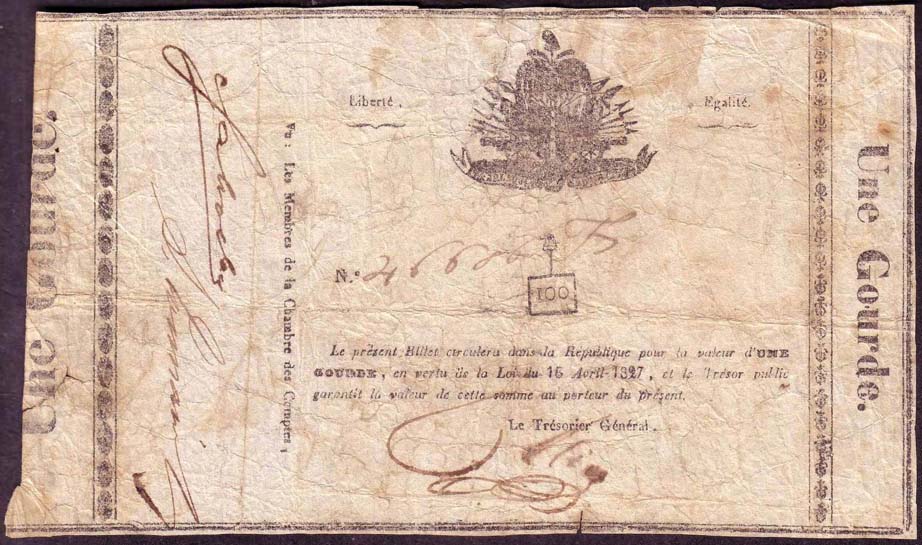 Une Gourde.
Liberté.
Egalité.
Vu : Les Membres de la Chambre des Comptes,
N.º
100
Le présent Billet circulera dans la République pour la valeur d'UNE
GOURDE, en vertu de la Loi du 16 Avril 1827, et le Trésor public
garantit la valeur de cette somme au porteur du présent.
Le Trésorier Général.
Une Gourde.